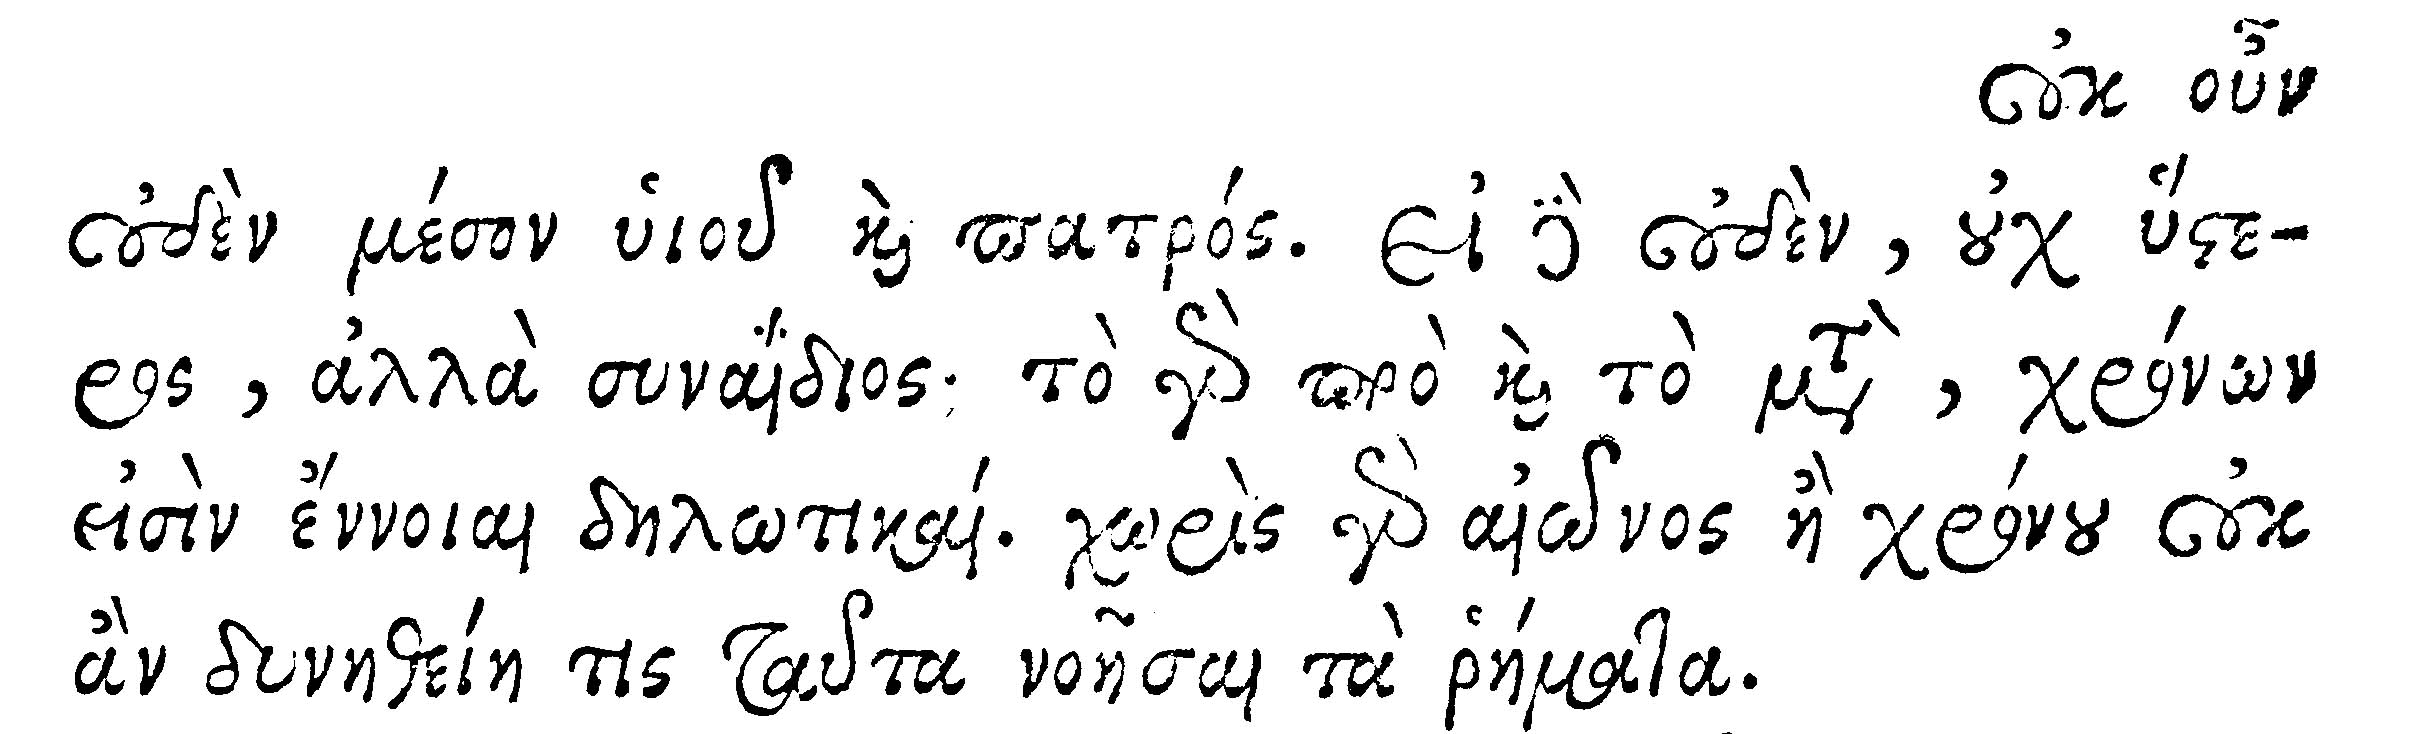 οὐκ οὖν
οὐδὲν μέσον ὑιοῦ καὶ πατρός. Εἰ δὲ οὐδὲν, οὐχ ὕστε-
ρος, ἀλλὰ συναΐδιος· τὸ γὰρ πρὸ καὶ τὸ μετὰ, χρόνων
εἰσὶν ἔννοιαι δηλωτικαί. χωρὶς γὰρ αἰῶνος ἢ χρόνου οὐκ
ἂν δυνηθείη τις ταῦτα νοῆσαι τὰ ῥήματα.